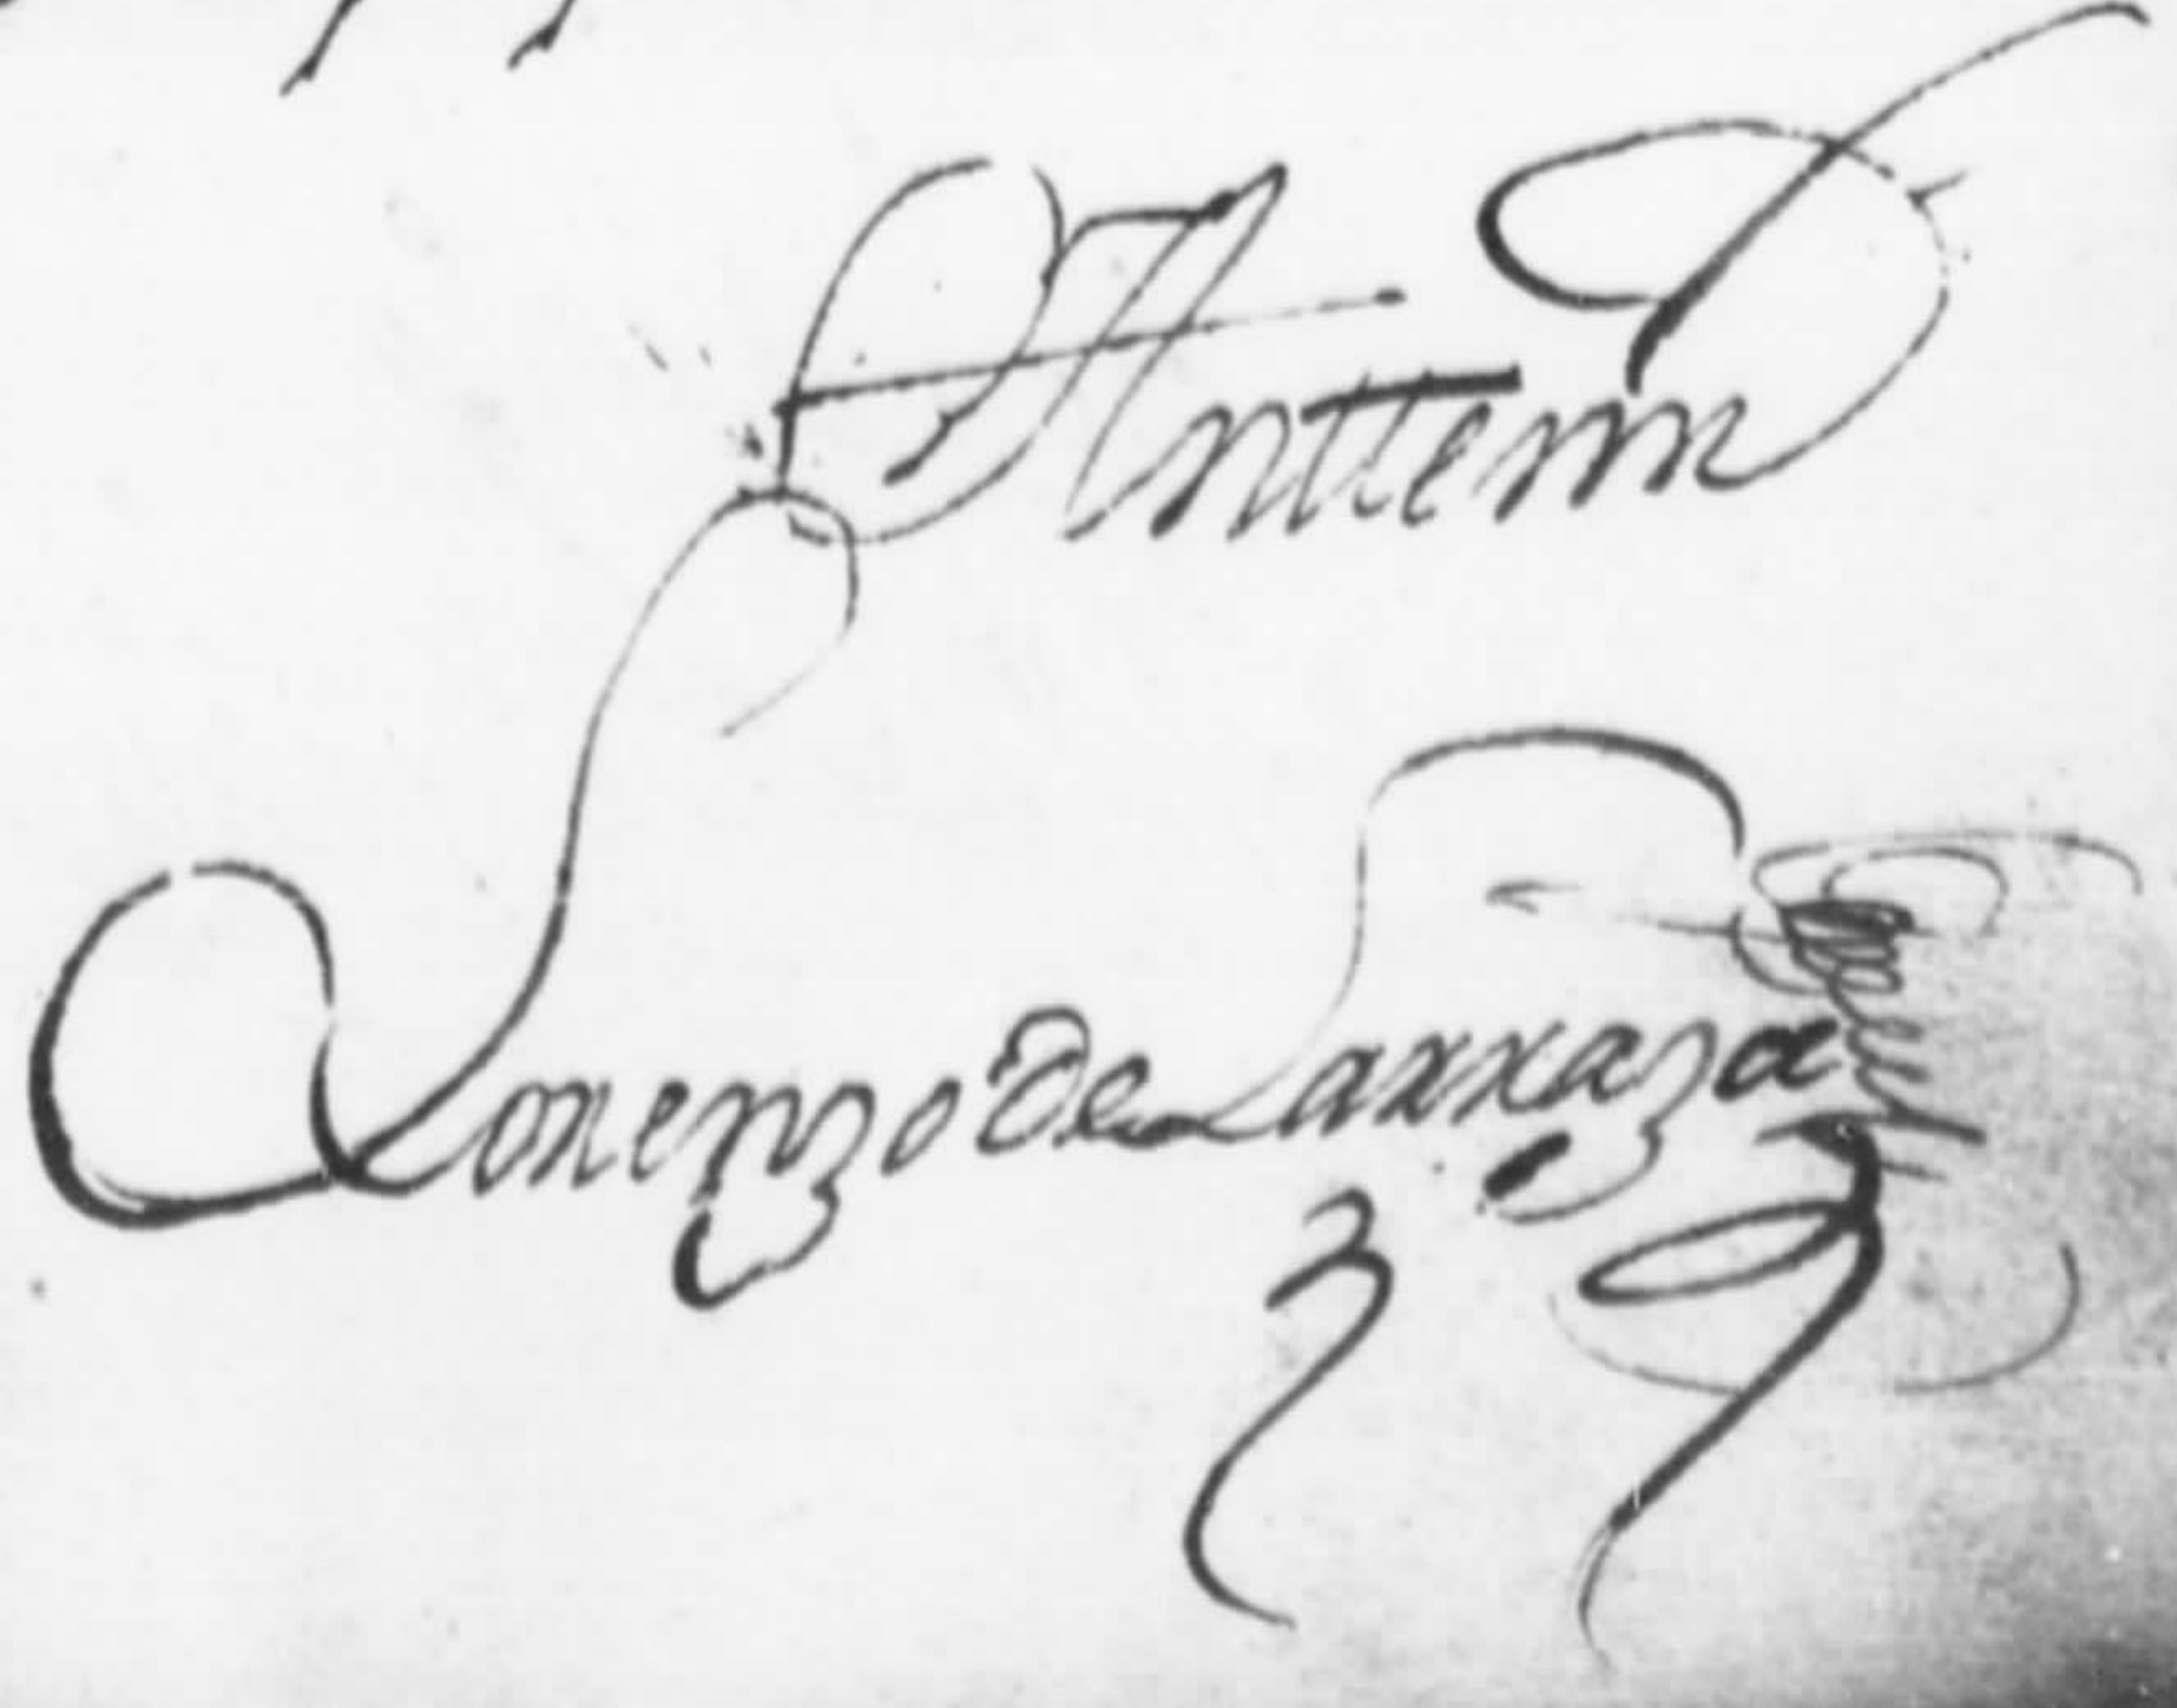 Antte mi
Lorenzo de Larraza